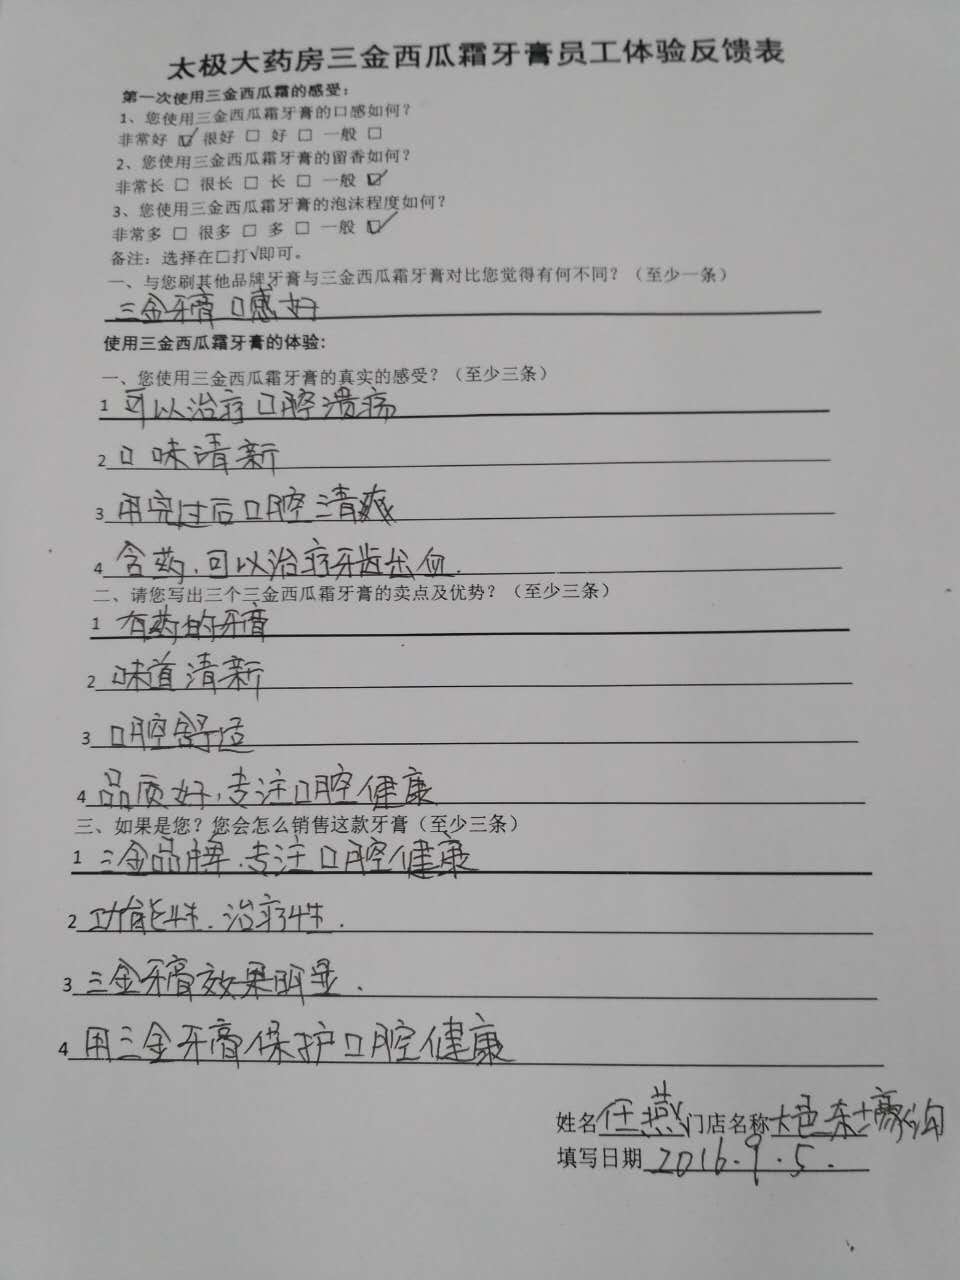 太极大药房三金西瓜霜牙膏员工体验反馈表
第一次使用三金西瓜霜的感受：
1、您使用三金西瓜霜牙膏的口感如何？
非常好 ☑ 很好 □ 好 □ 一般 □
2、您使用三金西瓜霜牙膏的留香如何？
非常长 □ 很长 □ 长 □ 一般 ☑
3、您使用三金西瓜霜牙膏的泡沫程度如何？
非常多 □ 很多 □ 多 □ 一般 ☑
备注：选择在□打√即可。
一、与您刷其他品牌牙膏与三金西瓜霜牙膏对比您觉得有何不同？（至少一条）
三金牙膏口感好
使用三金西瓜霜牙膏的体验：
一、您使用三金西瓜霜牙膏的真实的感受？（至少三条）
1 可以治疗口腔溃疡
2 口味清新
3 用完过后口腔清爽
4 含药，可以治疗牙齿出血.
二、请您写出三个三金西瓜霜牙膏的卖点及优势？（至少三条）
1 有药的牙膏
2 味道清新
3 口腔舒适
4 品质好，专注口腔健康
三、如果是您？您会怎么销售这款牙膏（至少三条）
1 三金品牌，专注口腔健康
2 功能性.治疗性.
3 三金牙膏效果明显.
4 用三金牙膏保护口腔健康
姓名 任燕 门店名称 大邑东壕沟
填写日期 2016.9.5.